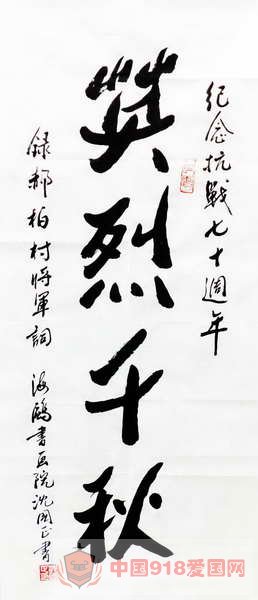 紀念抗戰七十週年
英烈千秋
錄郝柏村將軍詞 海鷗書画院沈国正書
中国918爱国网